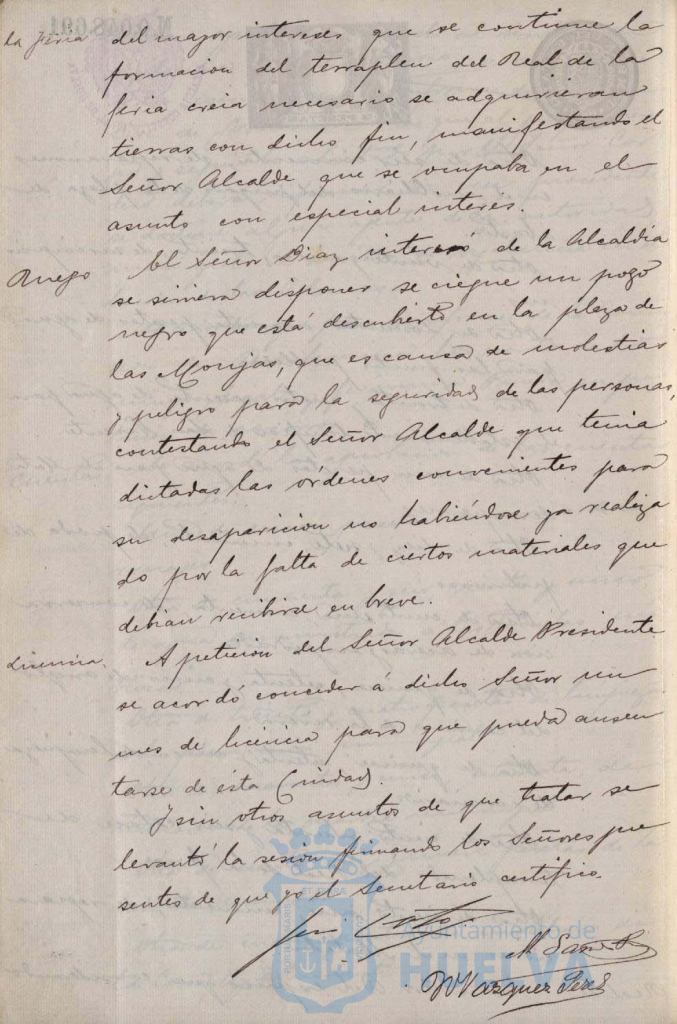 la feria
del mayor intereses que se continue la
formacion del terraplen del Real de la
feria creia necesario se adquirieran
tierras con dicho fin, manifestando el
Señor Alcalde que se ocupaba en el
asunto con especial interés.
Ruego
El Señor Diaz interesó de la Alcaldia
se sirviera disponer se ciegue un pozo
negro que está descubierto en la plaza de
las Monjas, que es causa de molestias
y peligro para la seguridad de las personas,
contestando el Señor Alcalde que tenia
dictadas las órdenes convenientes para
su desaparicion no habiéndose ya realiza
do por la falta de ciertos materiales que
debian recibirse en breve.
Licencia.
A peticion del Señor Alcalde Presidente
se acordó conceder á dicho Señor un
mes de licencia para que pueda ausen
tarse de esta Ciudad.
Y sin otros asuntos de que tratar se
levantó la sesión firmando los Señores pre
sentes de que yo el Secretario certifico.
Ayuntamiento de
HUELVA
M.
Vazquez Perez